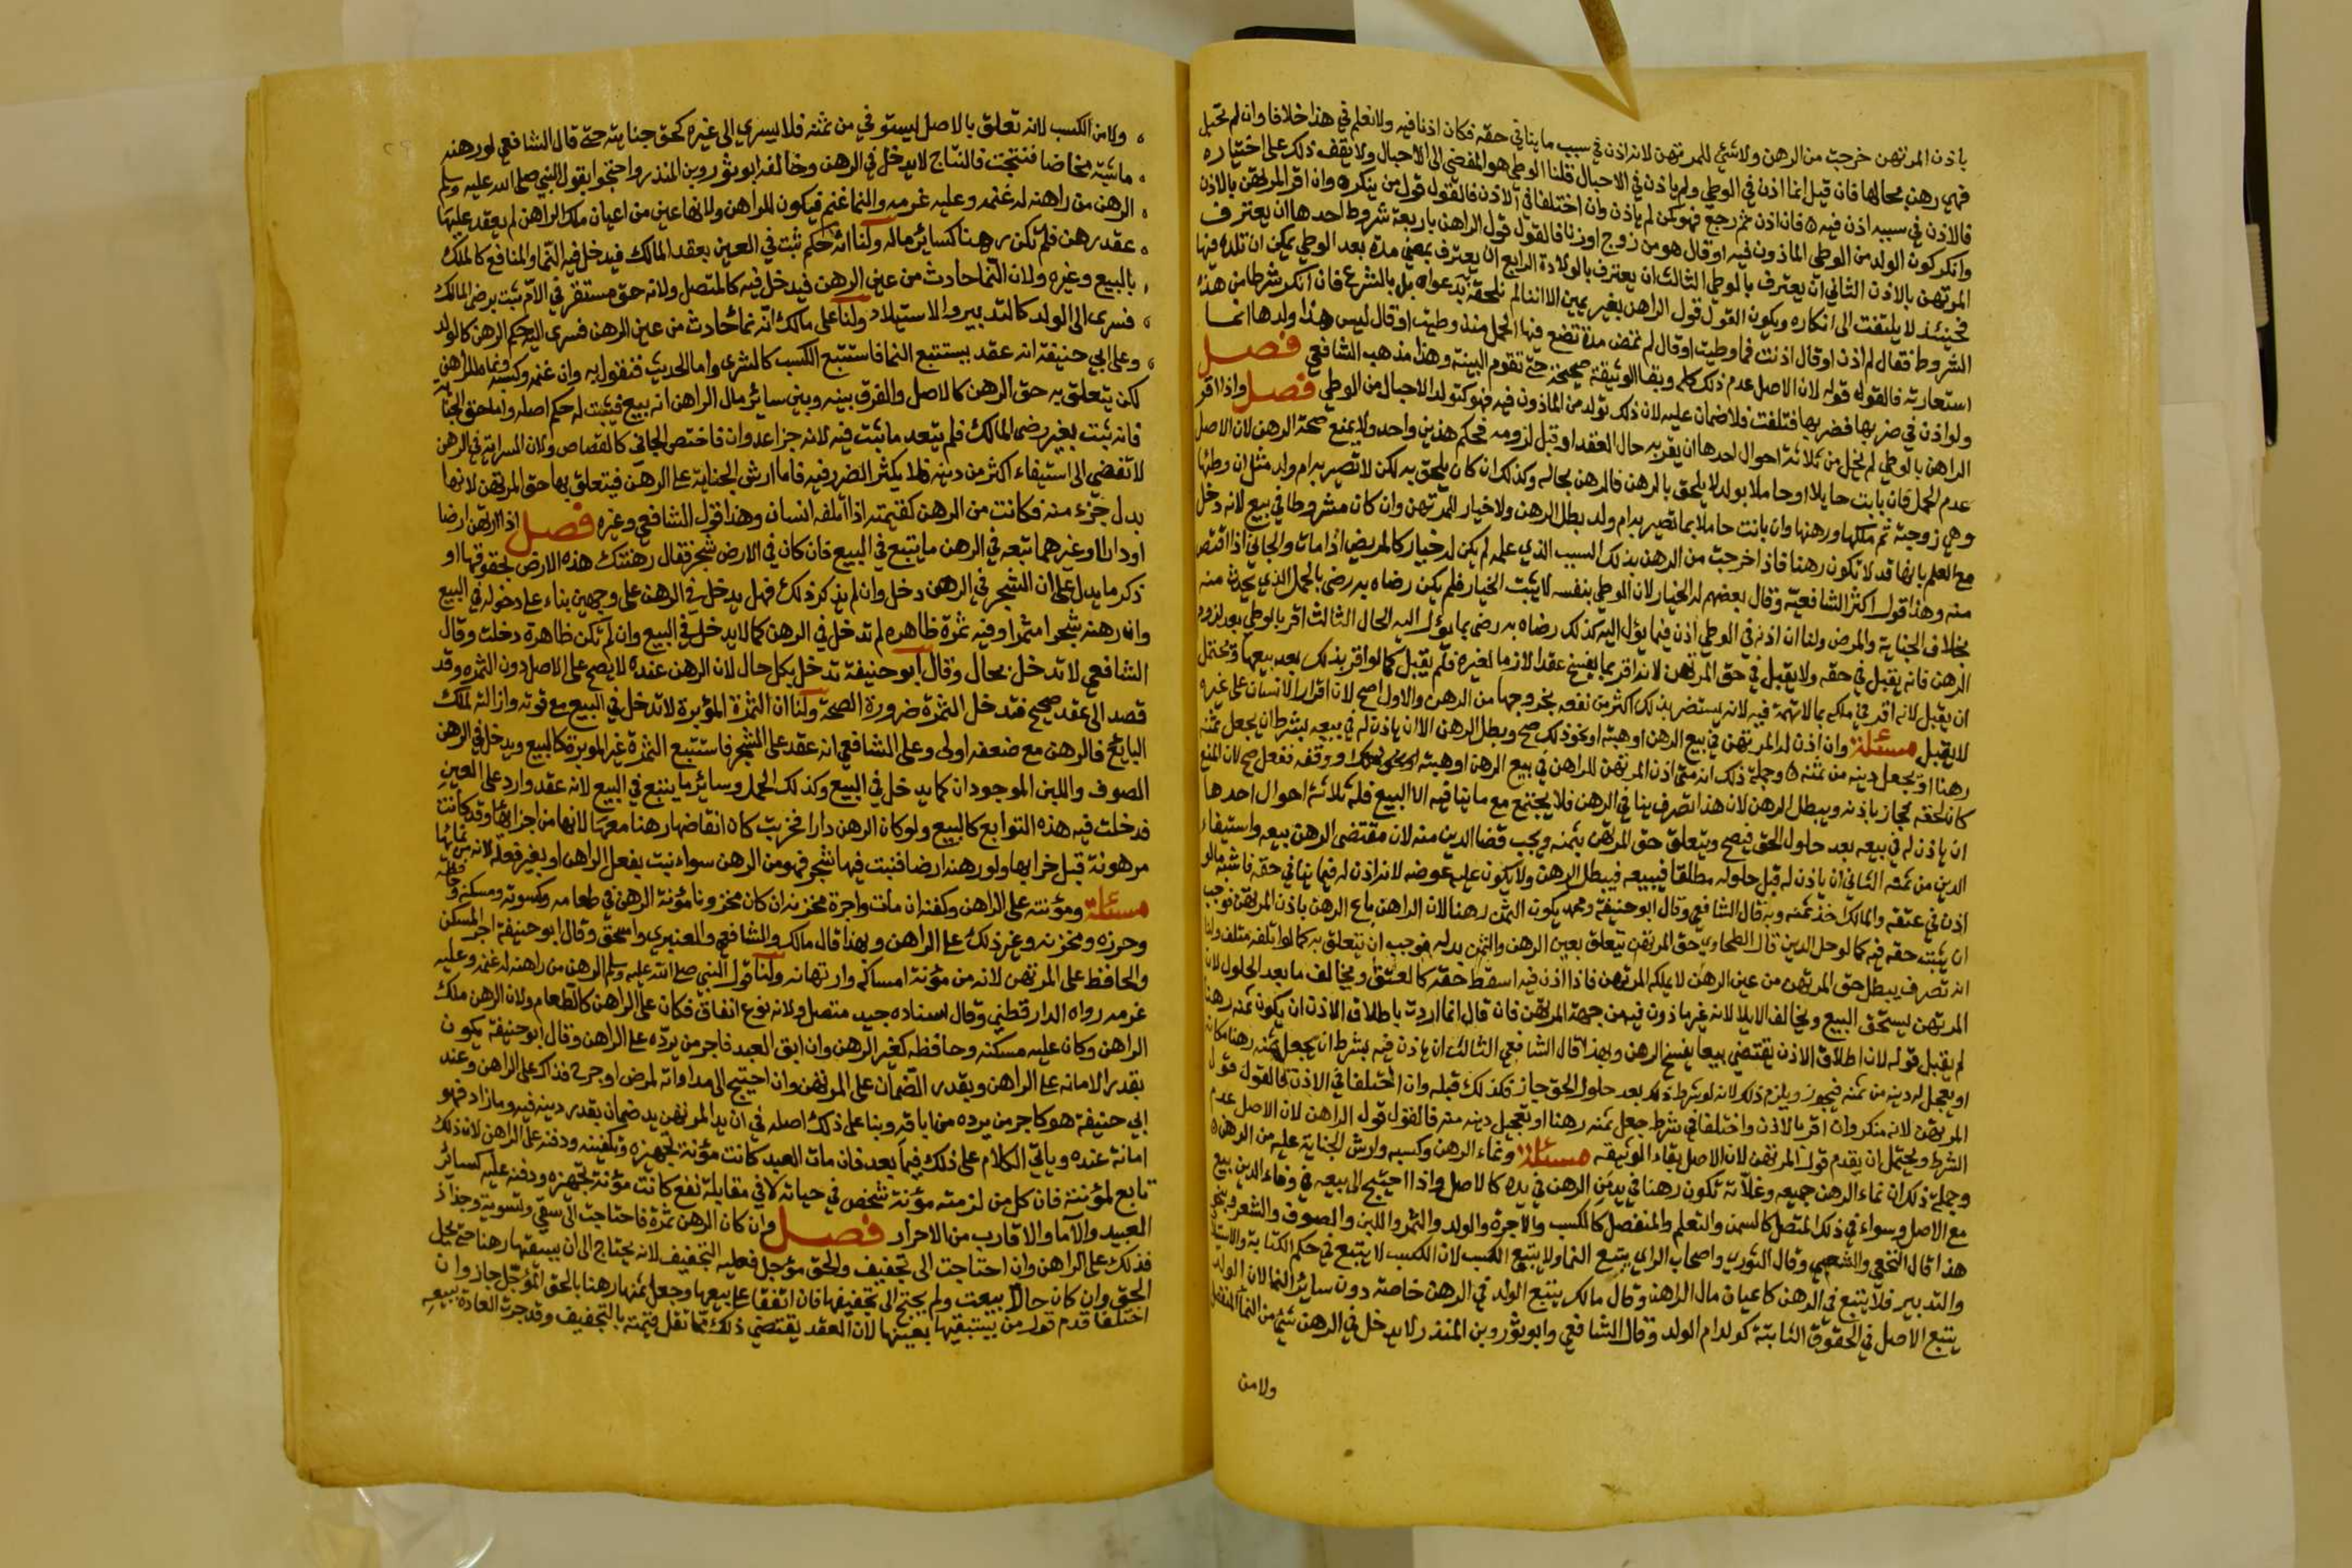 باذن المرتهن خرجت من الرهن ولا شئ للمرتهن لانه اذن في سبب ما ينافي حقه فكان اذنا فيه ولا نعلم في هذا خلافا وان لم تحبل
فهي رهن بحالها فان قيل انما اذن في الوطي ولم ياذن في الاحبال قلنا الوطي هو المفضي الى الاحبال ولا يقف ذلك على اختياره
فالاذن في سببه اذن فيه فان اذن ثم رجع فهو كمن لم ياذن وان اختلفا في الاذن فالقول قول من ينكره وان اقر المرتهن بالاذن
وانكر كون الولد من الوطي الماذون فيه او قال هو من زوج او زنا فالقول قول الراهن باربعة شروط احدها ان يعترف
المرتهن بالاذن الثاني ان يعترف بالوطي الثالث ان يعترف بالولادة الرابع ان يعترف بمضي مدة بعد الوطي يمكن ان تلده فيها
فحينئذ لا يلتفت الى انكاره ويكون القول قول الراهن بغير يمين لاننا لم نلحقه بدعواه بل بالشرع فان انكر شرطا من هذه
الشروط فقال لم اذن او قال اذنت فما وطيت او قال لم تمض مدة تضع فيها الحمل منذ وطيت او قال ليس هذا ولدها انما
استعارته فالقول قوله لان الاصل عدم ذلك كله وبقا الوثيقة صحيحة حتى تقوم البينة وهذا مذهب الشافعي فصل
ولو اذن في ضربها فضربها فتلفت فلا ضمان عليه لان ذلك تولد من الماذون فيه فهو كتولد الاحبال من الوطي فصل واذا اقر
الراهن بالوطي لم يخل من ثلاثة احوال احدها ان يقر به حال العقد او قبل لزومه فحكم هذين واحد ولا يمنع صحة الرهن لان الاصل
عدم الحمل فان بانت حايلا او حاملا بولد لا يلحق بالرهن فالرهن بحاله وكذلك ان كان يلحق به لكن لا تصير به ام ولد مثل ان وطئها
وهي زوجته ثم ملكها ورهنها وان بانت حاملا بما تصير به ام ولد بطل الرهن ولا خيار للمرتهن وان كان مشروطا في بيع لانه دخل
مع العلم بانها قد لا تكون رهنا فاذا خرجت من الرهن بذلك السبب الذي علمه لم يكن له خيار كالمريض اذا مات والجاني اذا اقتص
منه وهذا قول اكثر الشافعية وقال بعضهم له الخيار لان الوطي بنفسه لا يثبت الخيار فلم يكن رضاه به رضى بالحمل الذي يحدث منه
بخلاف الجناية والمرض ولنا ان اذنه في الوطي اذن فيما يؤل اليه كذلك رضاه به رضى بما يؤل اليه الحال الثالث اقر بالوطي بعد لزوم
الرهن فانه يقبل في حقه ولا يقبل في حق المرتهن لانه اقر بما يفسخ عقدا لازما لغيره فلم يقبل كما لو اقر بذلك بعد بيعها ويحتمل
ان يقبل لانه اقر في ملكه بما لا تهمة فيه لانه يستضر بذلك اكثر من نفعه بخروجها من الرهن والاول اصح لان اقرار الانسان على غيره
لا يقبل مسئلة وان اذن له المرتهن في بيع الرهن او هبته او نحو ذلك صح وبطل الرهن الا ان ياذن له في بيعه بشرط ان يجعل ثمنه
رهنا او يجعل دينه من ثمنه وجملة ذلك انه متى اذن المرتهن للراهن في بيع الرهن او هبته او وقفه ففعل صح لان المنع
كان لحقه فجاز باذنه ويبطل الرهن لان هذا تصرف ينافي الرهن فلا يجتمع مع ما ينافيه الا البيع فله ثلاثة احوال احدها
ان ياذن له في بيعه بعد حلول الحق فيصح ويتعلق حق المرتهن بثمنه ويجب قضا الدين منه لان مقتضى الرهن بيعه واستيفاء
الدين من ثمنه الثاني ان ياذن له قبل حلوله مطلقا فيبيعه فيبطل الرهن ولا يكون عليه عوضه لانه اذن له فيما ينافي حقه فاشبه ما لو
اذن في عتقه والمالك اخذ ثمنه وبه قال الشافعي وقال ابو حنيفة ومحمد يكون الثمن رهنا لان الراهن باع الرهن باذن المرتهن فوجب
ان يثبت حقه فيه كما لو حل الدين قال الطحاوي حق المرتهن يتعلق بعين الرهن والثمن بدله فوجب ان يتعلق به كما لو اتلفه متلف ولنا
انه تصرف يبطل حق المرتهن من عين الرهن لا يملكه المرتهن فاذا اذن فيه اسقط حقه كالعتق ويخالف ما بعد الحلول لان
المرتهن يستحق البيع ويخالف الاتلاف لانه غير ماذون فيه من جهة المرتهن فان قال انما اردت باطلاق الاذن ان يكون ثمنه رهنا
لم يقبل قوله لان اطلاق الاذن يقتضي بيعا يفسخ الرهن وبهذا قال الشافعي الثالث ان ياذن فيه بشرط ان يجعل ثمنه رهنا مكانه
او يعجل له دينه من ثمنه فيجوز ويلزم ذلك لانه لو شرط ذلك بعد حلول الحق جاز فكذلك قبله وان اختلفا في الاذن فالقول قول
المرتهن لانه منكر وان اقر بالاذن واختلفا في شرط جعل ثمنه رهنا او تعجيل دينه منه فالقول قول الراهن لان الاصل عدم
الشرط ويحتمل ان يقدم قول المرتهن لان الاصل بقاء الوثيقة مسئلة ونماء الرهن وكسبه وارش الجناية عليه من الرهن
وجملة ذلك ان نماء الرهن جميعه وغلاته تكون رهنا في يد من الرهن في يده كالاصل واذا احتيج الى بيعه في وفاء الدين بيع
مع الاصل وسواء في ذلك المتصل كالسمن والتعلم والمنفصل كالكسب والاجرة والولد والثمر واللبن والصوف والشعر وبنحو
هذا قال النخعي والشعبي وقال الثوري واصحاب الراي يتبع النما ولا يتبع الكسب لان الكسب لا يتبع في حكم الكتابة والاستيلاد
والتدبير فلا يتبع في الرهن كاعيان مال الراهن وقال مالك يتبع الولد في الرهن خاصة دون ساير النما لان الولد
يتبع الاصل في الحقوق الثابتة كولد ام الولد وقال الشافعي وابو ثور وبن المنذر لا يدخل في الرهن شئ من النما المنفصل
ولا من
ولا من الكسب لانه تعلق بالاصل ليستوفي من ثمنه فلا يسري الى غيره كحق جنايته حتى قال الشافعي لو رهنه
ماشية مخاضا فنتجت فالنتاج لا يدخل في الرهن وخالفه ابو ثور وبن المنذر واحتجوا بقول النبي صلى الله عليه وسلم
الرهن من راهنه له غنمه وعليه غرمه والنما غنم فيكون للراهن ولانها عين من اعيان ملك الراهن لم يعقد عليها
عقد رهن فلم تكن رهنا كسائر ماله ولنا انه حكم ثبت في العين بعقد المالك فيدخل فيه النما والمنافع كالملك
بالبيع وغيره ولان النما حادث من عين الرهن فيدخل فيه كالمتصل ولانه حق مستقر في الام ثبت برضى المالك
فسرى الى الولد كالتدبير والاستيلاد ولنا على مالك انه نماء حادث من عين الرهن فسرى اليه حكم الرهن كالولد
وعلى ابي حنيفة انه عقد يستتبع النما فاستتبع الكسب كالشرى واما الحديث فنقول به وان غنمه وكسبه ونماه للراهن
لكن يتعلق به حق الرهن كالاصل والفرق بينه وبين سائر مال الراهن انه بيع فيثبت له حكم اصله واما حق الجناية
فانه ثبت بغير رضى المالك فلم يتعد ما ثبت فيه لانه جزا عدوان فاختص الجاني كالقصاص ولان السراية في الرهن
لا تفضي الى استيفاء اكثر من دينه فلا يكثر الضرر فيه فاما ارش الجناية على الرهن فيتعلق بها حق المرتهن لانها
بدل جزء منه فكانت من الرهن كقيمته اذا اتلفه انسان وهذا قول الشافعي وغيره فصل اذا ارتهن ارضا
او دارا او غيرهما تبعه في الرهن ما يتبع في البيع فان كان في الارض شجر فقال رهنتك هذه الارض بحقوقها او
ذكر ما يدل على ان الشجر في الرهن دخل وان لم يذكر ذلك فهل يدخل في الرهن على وجهين بناء على دخوله في البيع
وان رهنه شجرا مثمرا وفيه ثمرة ظاهره لم تدخل في الرهن كما لا يدخل في البيع وان لم تكن ظاهرة دخلت وقال
الشافعي لا تدخل بحال وقال ابو حنيفة تدخل بكل حال لان الرهن عنده لا يصح على الاصل دون الثمره وقد
قصد الى عقد صحيح فتدخل الثمرة ضرورة الصحة ولنا ان الثمرة المؤبرة لا تدخل في البيع مع قوته وازالته لملك
البايع فالرهن مع ضعفه اولى وعلى الشافعي انه عقد على الشجر فاستتبع الثمرة غير الموبرة كالبيع ويدخل في الرهن
الصوف واللبن الموجودان كما يدخل في البيع وكذلك الحمل وسائر ما يتبع في البيع لانه عقد وارد على العين
فدخلت فيه هذه التوابع كالبيع ولو كان الرهن دارا فخربت كان انقاضها رهنا معها لانها من اجزائها وقد كانت
مرهونة قبل خرابها ولو رهنه ارضا فنبت فيها شجر فهو من الرهن سواء نبت بفعل الراهن او بغير فعله لانه من نمائها
مسئلة ومؤنته على الراهن وكفنه ان مات واجرة مخزنه ان كان مخزونا مؤنة الرهن في طعامه وكسوته ومسكنه وحافظه
وحرزه ومخزنه وغير ذلك على الراهن وبهذا قال مالك والشافعي والعنبري واسحق وقال ابو حنيفة اجر المسكن
والحافظ على المرتهن لانه من مؤنة امساكه وارتهانه ولنا قول النبي صلى الله عليه وسلم الرهن من راهنه له غنمه وعليه
غرمه رواه الدارقطني وقال اسناده جيد متصل ولانه نوع انفاق فكان على الراهن كالطعام ولان الرهن ملك
الراهن وكان عليه مسكنه وحافظه كغير الرهن وان ابق العبد فاجر من يرده على الراهن وقال ابو حنيفة يكون
بقدر الامانه على الراهن وبقدر الضمان على المرتهن وان احتيج الى مداواته لمرض او جرح فذاك على الراهن وعند
ابي حنيفة هو كاجر من يرده من اباقه وبنا على ذلك اصله في ان يد المرتهن يد ضمان بقدر دينه فيه وما زاد فهو
امانة عنده وياتي الكلام على ذلك فيما بعد فان مات العبد كانت مؤنة تجهيزه وتكفينه ودفنه على الراهن لان ذلك
تابع لمؤنته فان كل من لزمته مؤنة شخص في حياته لا في مقابلة نفع كانت مؤنة تجهيزه ودفنه عليه كسائر
العبيد والاما والاقارب من الاحرار فصل وان كان الرهن ثمرة فاحتاجت الى سقي وتسوية وجذاذ
فذلك على الراهن وان احتاجت الى تجفيف والحق مؤجل فعليه التجفيف لانه يحتاج الى ان يستبقيها رهنا حتى يحل
الحق وان كان حالا بيعت ولم يحتج الى تجفيفها فان اتفقا على بيعها وجعل ثمنها رهنا بالحق المؤجل جاز وان
اختلفا قدم قول من يستبقيها بعينها لان العقد يقتضي ذلك مما تقل قيمته بالتجفيف وقد جرت العادة ببيعه